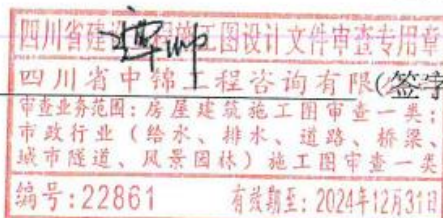 四川省建设工程施工图设计文件审查专用章
四川省中锦工程咨询有限(签字
审查业务范围:房屋建筑施工图审查一类;
市政行业(给水、排水、道路、桥梁、
城市隧道、风景园林)施工图审查一类
编号:22861 有效期至:2024年12月31日